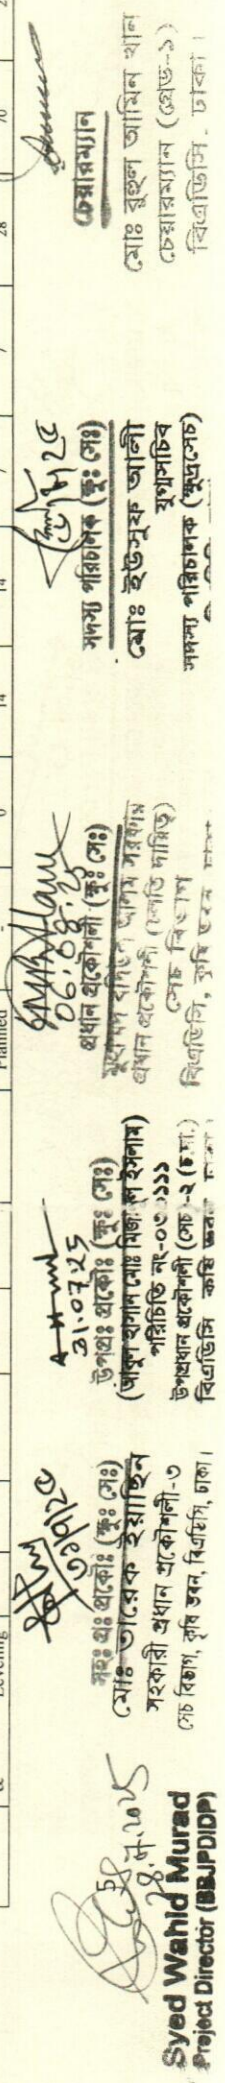 Leveling
Planned
14
14
7
7
28
70
28.7.2025
Syed Wahid Murad
Project Director (BBJPDIDP)
৩১/৭/২৫
সহঃ প্রঃ প্রকৌঃ (ক্ষুঃ সেঃ)
মোঃ তারেক ইয়াছিন
সহকারী প্রধান প্রকৌশলী-৩
সেচ বিভাগ, কৃষি ভবন, বিএডিসি, ঢাকা।
31.07.25
উপপ্রঃ প্রকৌঃ (ক্ষুঃ সেঃ)
(আবুল হাসান মোঃ মিজানুল ইসলাম)
পরিচিতি নং-০৩০১১১
উপপ্রধান প্রকৌশলী (সেচ)-২ (চ.দা.)
বিএডিসি কৃষি ভবন ঢাকা।
06.08.25
প্রধান প্রকৌশলী (ক্ষুঃ সেঃ)
মুহাম্মদ বদিউল আলম সরকার
প্রধান প্রকৌশলী (চলতি দায়িত্ব)
সেচ বিভাগ
বিএডিসি, কৃষি ভবন ঢাকা
সদস্য পরিচালক (ক্ষুঃ সেঃ)
মোঃ ইউসুফ আলী
যুগ্মসচিব
সদস্য পরিচালক (ক্ষুদ্রসেচ)
চেয়ারম্যান
মোঃ রুহুল আমিন খান
চেয়ারম্যান (গ্রেড-১)
বিএডিসি. ঢাকা।